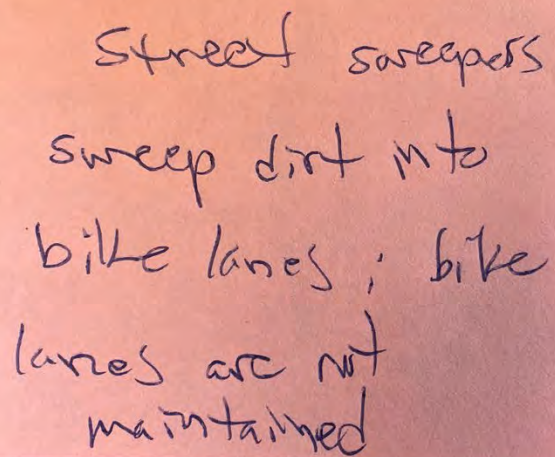 Street sweepers
sweep dirt into
bike lanes ; bike
lanes are not
maintained